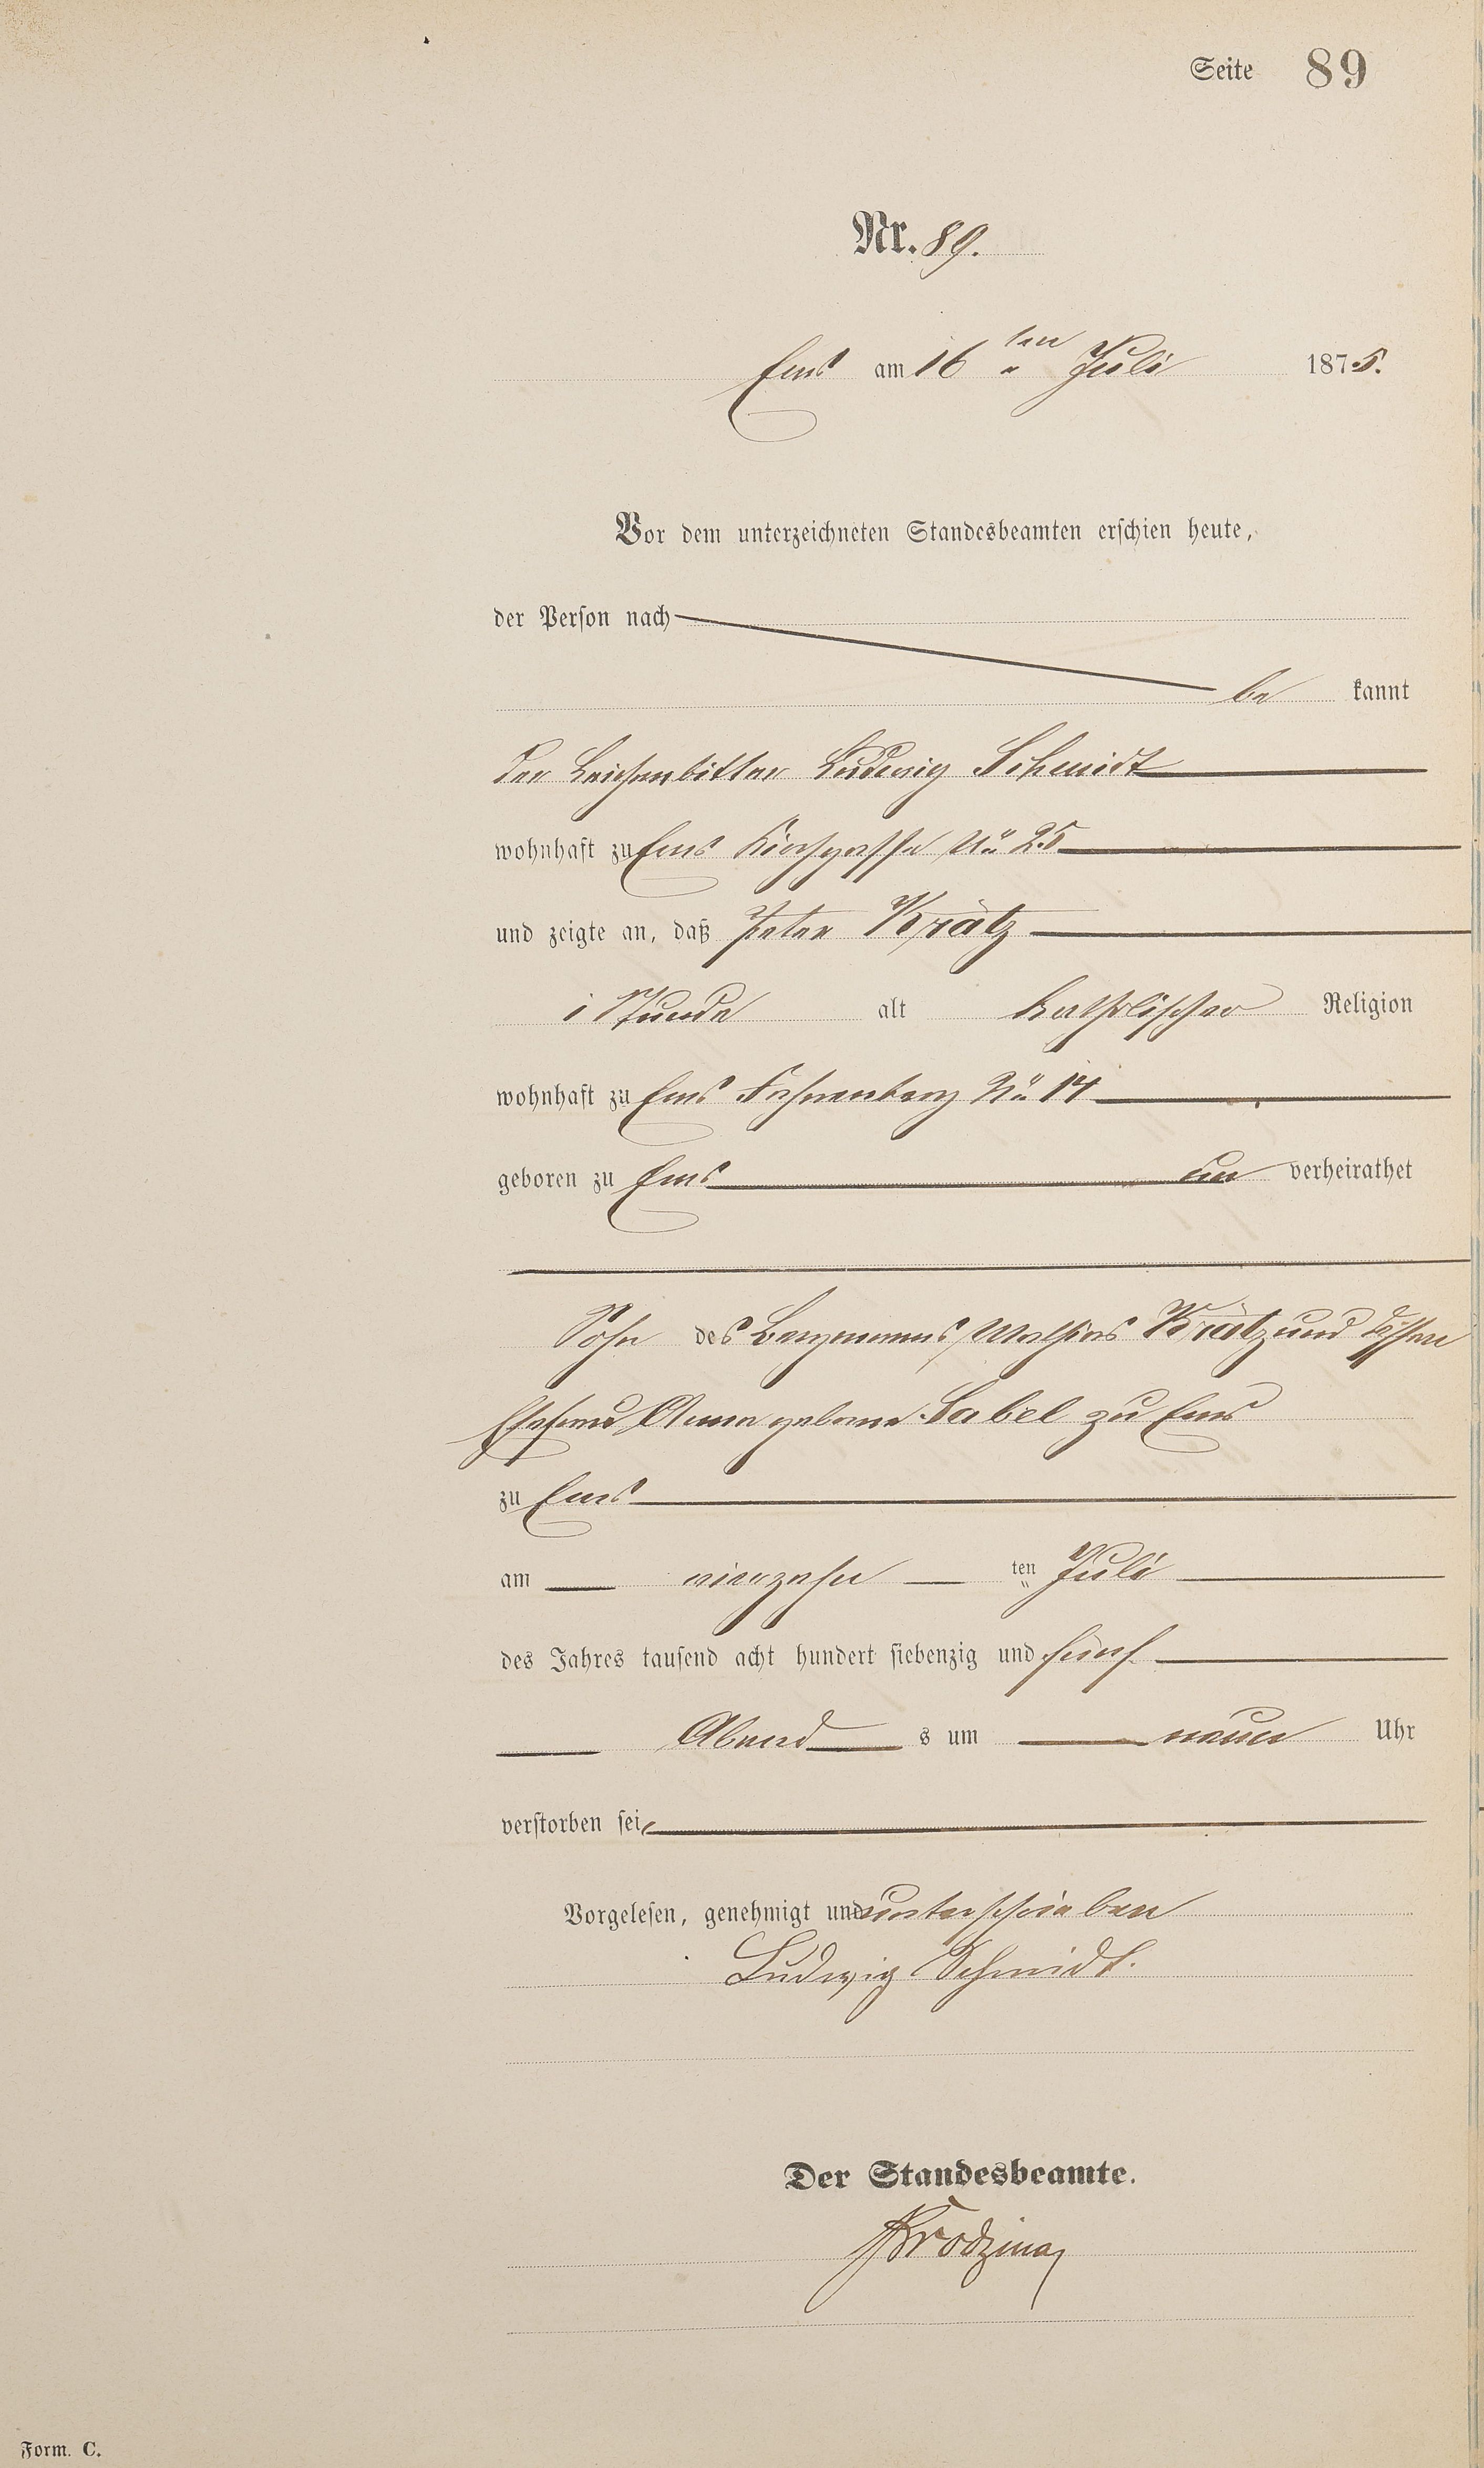 Seite 89
Nr. 89.
Ems am 16ten Juli 1875.
Vor dem unterzeichneten Standesbeamten erschien heute,
der Person nach
be kannt
der Leichenbitter Ludwig Schmidt
wohnhaft zu Ems Kirchgasse No 25
und zeigte an, daß Peter Krätz
1 Stunde alt katholischer Religion
wohnhaft zu Ems No 14
geboren zu Ems un verheirathet
Sohn des Bergmanns Mathias Krätz und dessen
Ehefrau Anna geborne Sabel zu Ems
zu Ems
am vierzehn ten Juli
des Jahres tausend acht hundert siebenzig und fünf
Abend s um neun Uhr
verstorben sei,
Vorgelesen, genehmigt und unterschrieben
Ludwig Schmidt.
Der Standesbeamte.
Form. C.